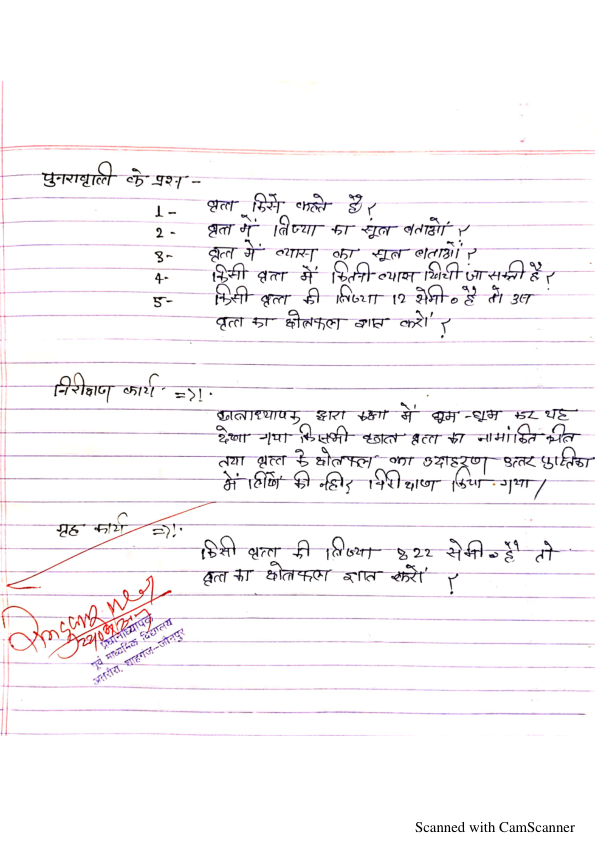 पुनरावृत्ति के प्रश्न -
1 - वृत्त किसे कहते है ?
2 - वृत्त में त्रिज्या का सूत्र बताओं ?
3 - वृत्त में व्यास का सूत्र बताओं ?
4 - किसी वृत्त में कितनी व्यास खिची जा सकती है ?
5 - किसी वृत्त की त्रिज्या 12 सेमी० है तो उस
वृत्त का क्षेत्रफल ज्ञात करों ?
निरीक्षण कार्य =>!.
छात्राध्यापक द्वारा कक्षा में घूम-घूम कर यह
देखा गया कि सभी छात्र वृत्त का नामांकित
तथा वृत्त के क्षेत्रफल का उदाहरण उत्तर पुस्तिका
में की नहीं निरीक्षण किया गया /
गृह कार्य =>!.
किसी वृत्त की त्रिज्या 22 सेमी० है तो
वृत्त का क्षेत्रफल ज्ञात करों ?
प्रधानाध्यापक
पूर्व माध्यमिक विद्यालय
शाहगंज-जौनपुर
Scanned with CamScanner